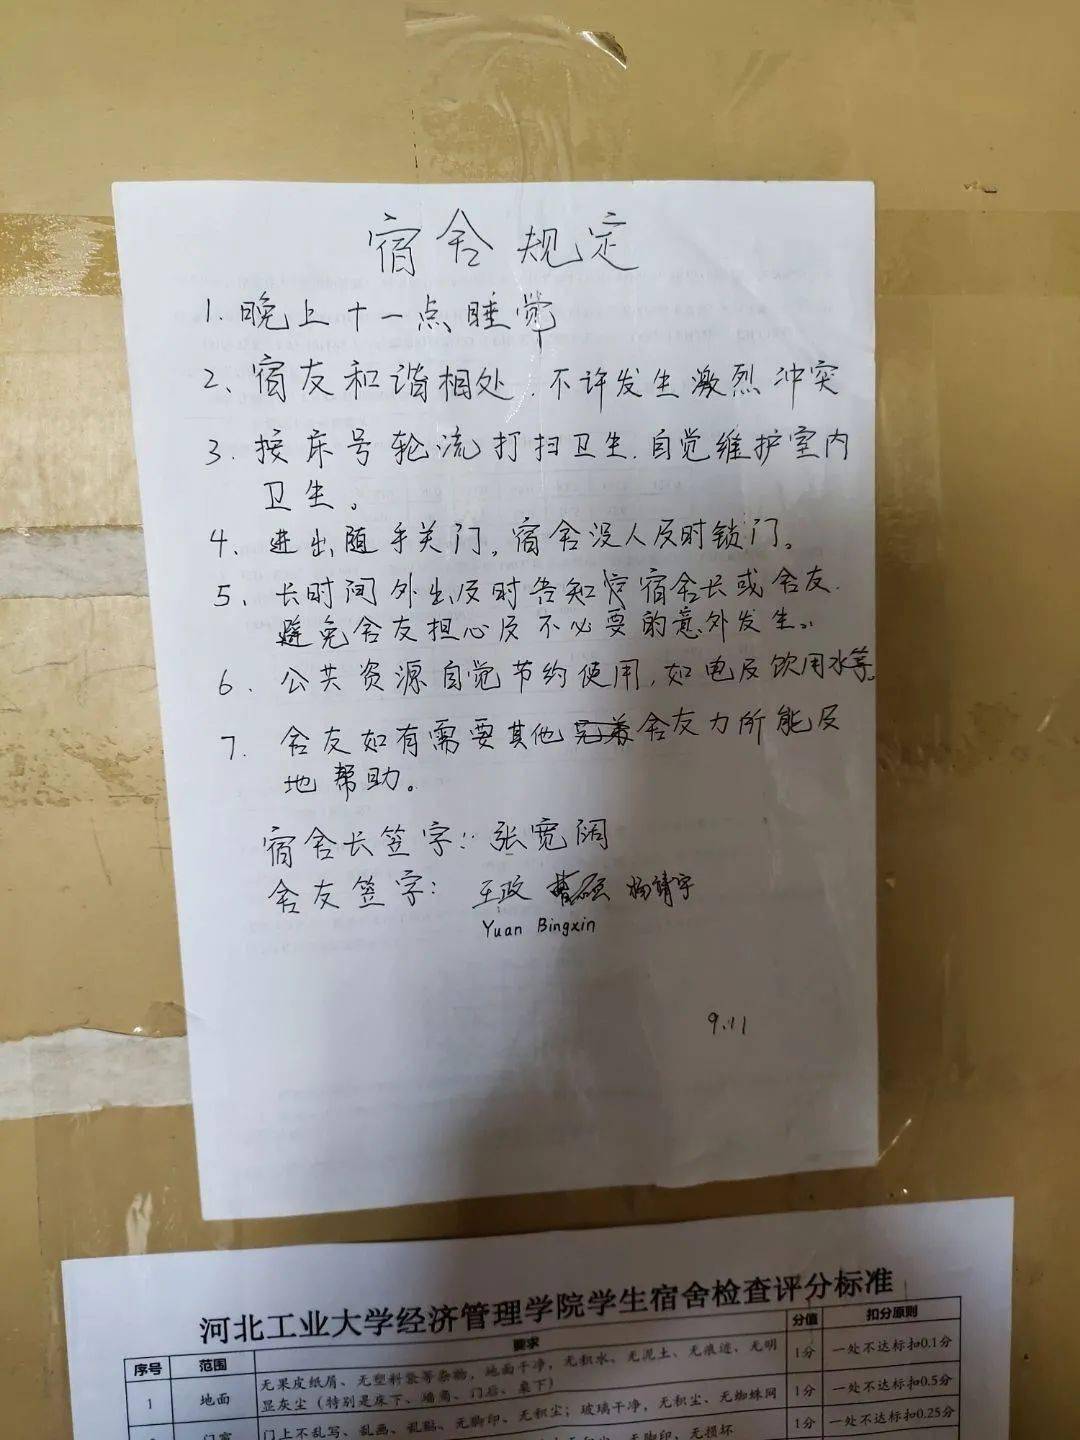 宿舍规定
1.晚上十一点睡觉
2、宿友和谐相处.不许发生激烈冲突
3.按床号轮流打扫卫生.自觉维护室内
卫生。
4、进出随手关门。宿舍没人及时锁门。
5、长时间外出及时告知宿舍长或舍友.
避免舍友担心及不必要的意外发生。
6.公共资源自觉节约使用,如电及饮用水等。
7.舍友如有需要其他舍友力所能及
地帮助。
宿舍长签字:张宽阔
舍友签字:王政 杨靖宇
Yuan Bingxin
9.11
河北工业大学经济管理学院学生宿舍检查评分标准
序号 范围 要求 分值 扣分原则
1 地面 无果皮纸屑、无塑料袋等杂物,地面干净,无积水、无泥土、无痕迹、无明 1分 一处不达标扣0.1分
显灰尘(特别是床下、墙角、门后、桌下) 1分 一处不达标扣0.5分
门上不乱写、乱画、乱贴、无脚印、无积尘;玻璃干净,无积尘、无蜘蛛网 1分 一处不达标扣0.25分
无脚印、无损坏